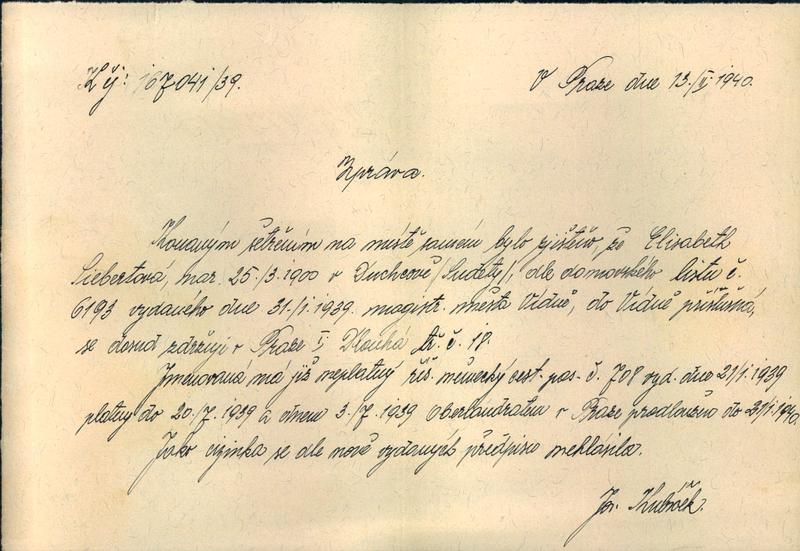 Zčj: 167041/39.
V Praze dne 13./II. 1940.
Zpráva.
Konaným šetřením na místě samém bylo zjištěno, že Elisabeth
Siebertová, nar. 25./3. 1900 v Duchcově /Sudety/, dle domovského listu č.
6193 vydaného dne 31/1. 1939. magistr. města Vídně, do Vídně příslušná,
se dosud zdržuje v Praze I. Dlouhá tř. č. 18.
Jmenovaná má již neplatný říš. německý cest. pas. č. 708 vyd. dne 21/1. 1939
platný do 20./7. 1939 a dnem 3./7. 1939 Oberlandratem v Praze prodloužen do 21/1. 1940.
Jako cizinka se dle nově vydaných předpisů nehlásila.
Jos.